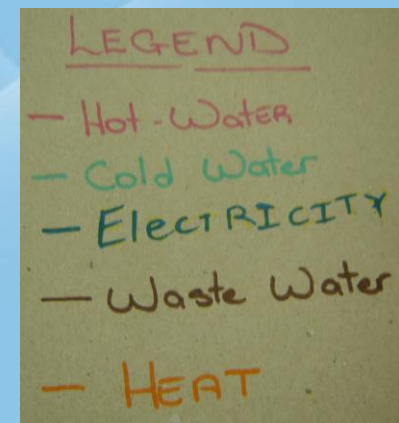 LEGEND
- Hot-Water
- Cold Water
- ElecTRICITY
- Waste Water
- HEAT